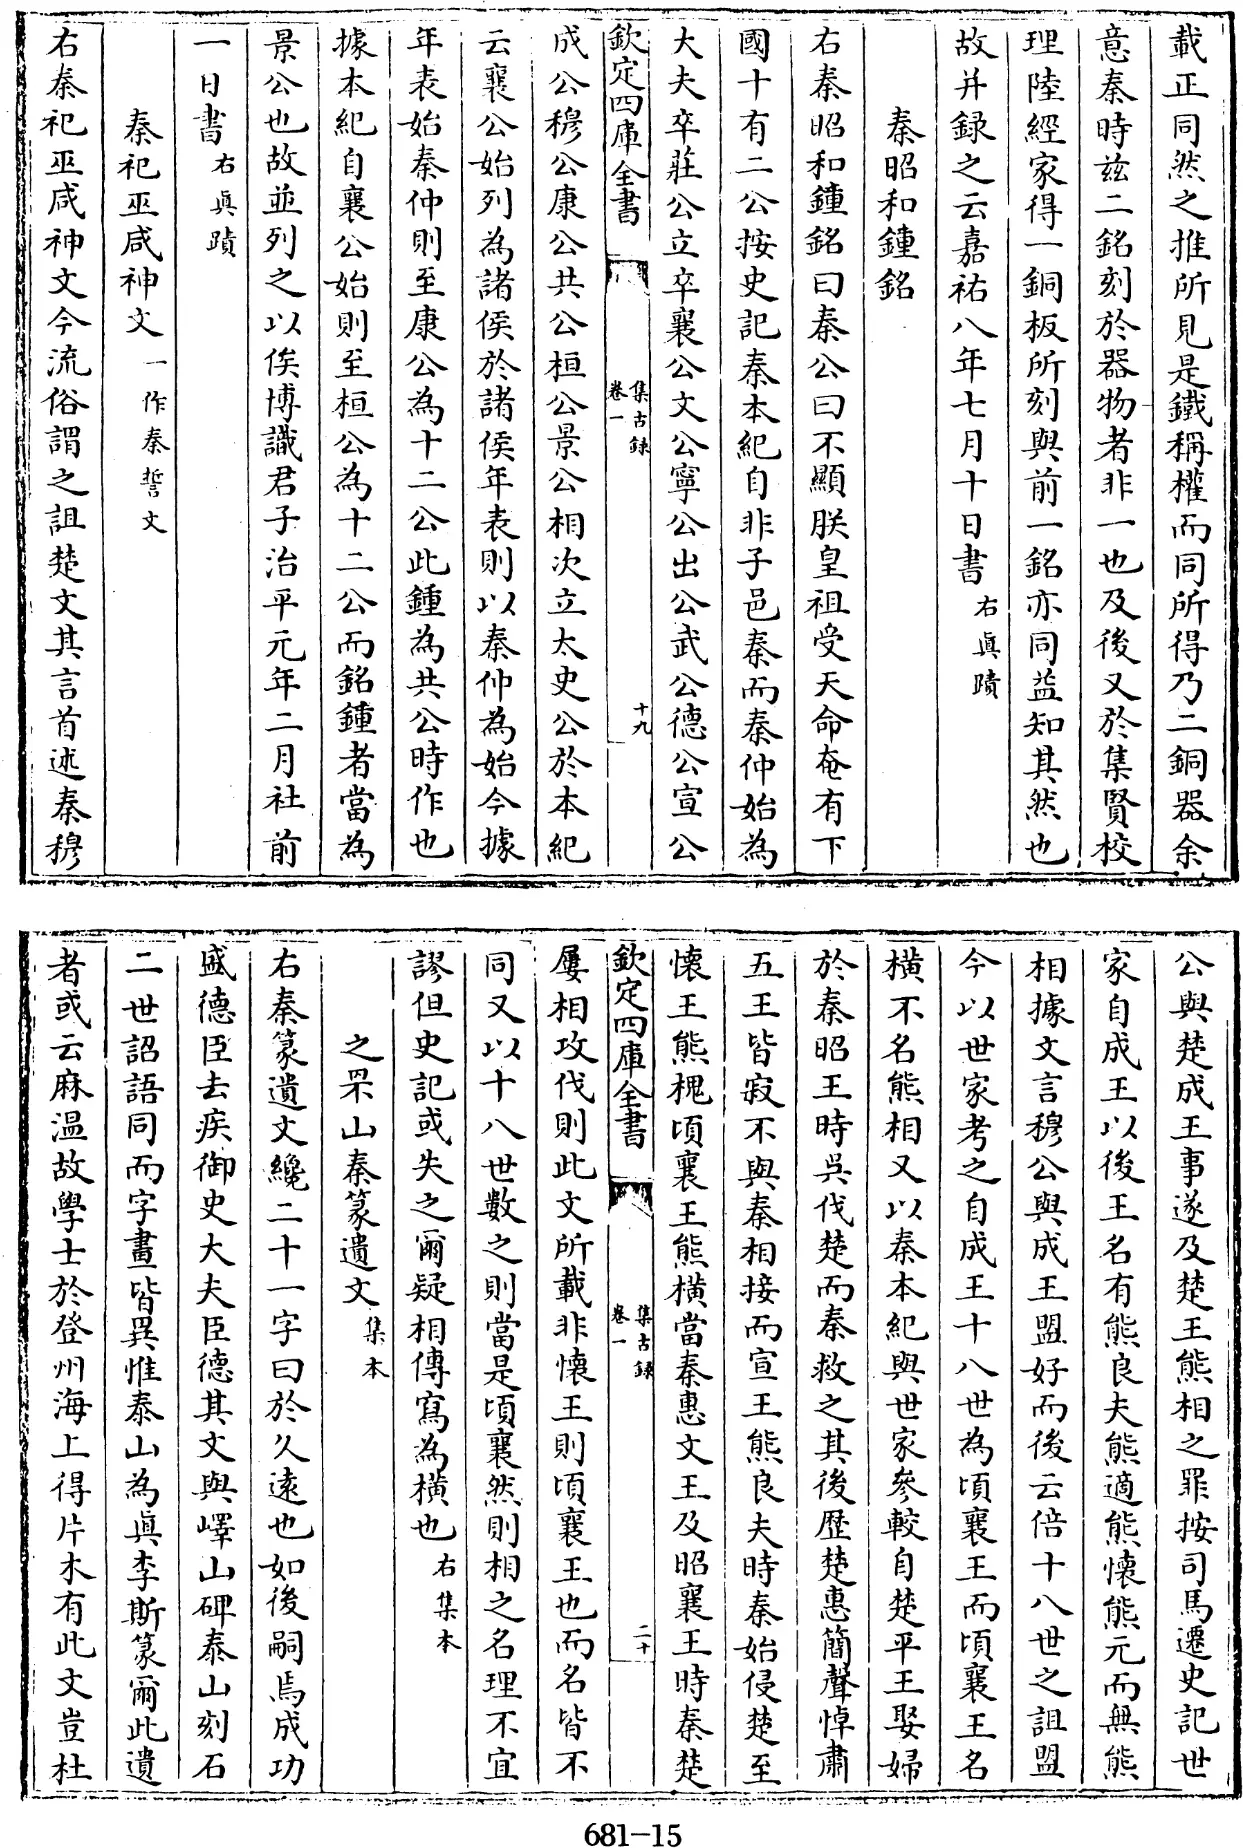 載正同然之推所見是鐵稱權而同所得乃二銅器余
意秦時兹二銘刻於器物者非一也及後又於集賢校
理陸經家得一銅板所刻與前一銘亦同益知其然也
故并録之云嘉祐八年七月十日書右眞蹟
秦昭和鍾銘
右秦昭和鍾銘曰秦公曰不顯朕皇祖受天命奄有下
國十有二公按史記秦本紀自非子邑秦而秦仲始為
大夫卒莊公立卒襄公文公寧公出公武公德公宣公
欽定四庫全書
集古録
卷一
十九
成公穆公康公共公桓公景公相次立太史公於本紀
云襄公始列為諸侯於諸侯年表則以秦仲為始今據
年表始秦仲則至康公為十二公此鍾為共公時作也
據本紀自襄公始則至桓公為十二公而銘鍾者當為
景公也故並列之以俟博識君子治平元年二月社前
一日書右眞蹟
秦祀巫咸神文一作秦誓文
右秦祀巫咸神文今流俗謂之詛楚文其言首述秦穆
公與楚成王事遂及楚王熊相之罪按司馬遷史記世
家自成王以後王名有熊良夫熊適熊懷熊元而無熊
相據文言穆公與成王盟好而後云倍十八世之詛盟
今以世家考之自成王十八世為頃襄王而頃襄王名
横不名熊相又以秦本紀與世家參較自楚平王娶婦
於秦昭王時吳伐楚而秦救之其後歴楚惠簡聲悼肅
五王皆寂不與秦相接而宣王熊良夫時秦始侵楚至
懷王熊槐頃襄王熊横當秦惠文王及昭襄王時秦楚
欽定四庫全書
集古録
卷一
二十
屢相攻伐則此文所載非懷王則頃襄王也而名皆不
同又以十八世數之則當是頃襄然則相之名理不宜
謬但史記或失之爾疑相傳寫為横也右集本
之罘山秦篆遺文集本
右秦篆遺文纔二十一字曰於久遠也如後嗣焉成功
盛德臣去疾御史大夫臣德其文與嶧山碑泰山刻石
二世詔語同而字畫皆異惟泰山為眞李斯篆爾此遺
者或云麻温故學士於登州海上得片木有此文豈杜
681-15